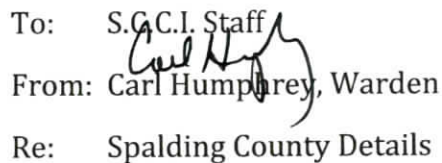 To: S.C.C.I. Staff
From: Carl Humphrey, Warden
Re: Spalding County Details